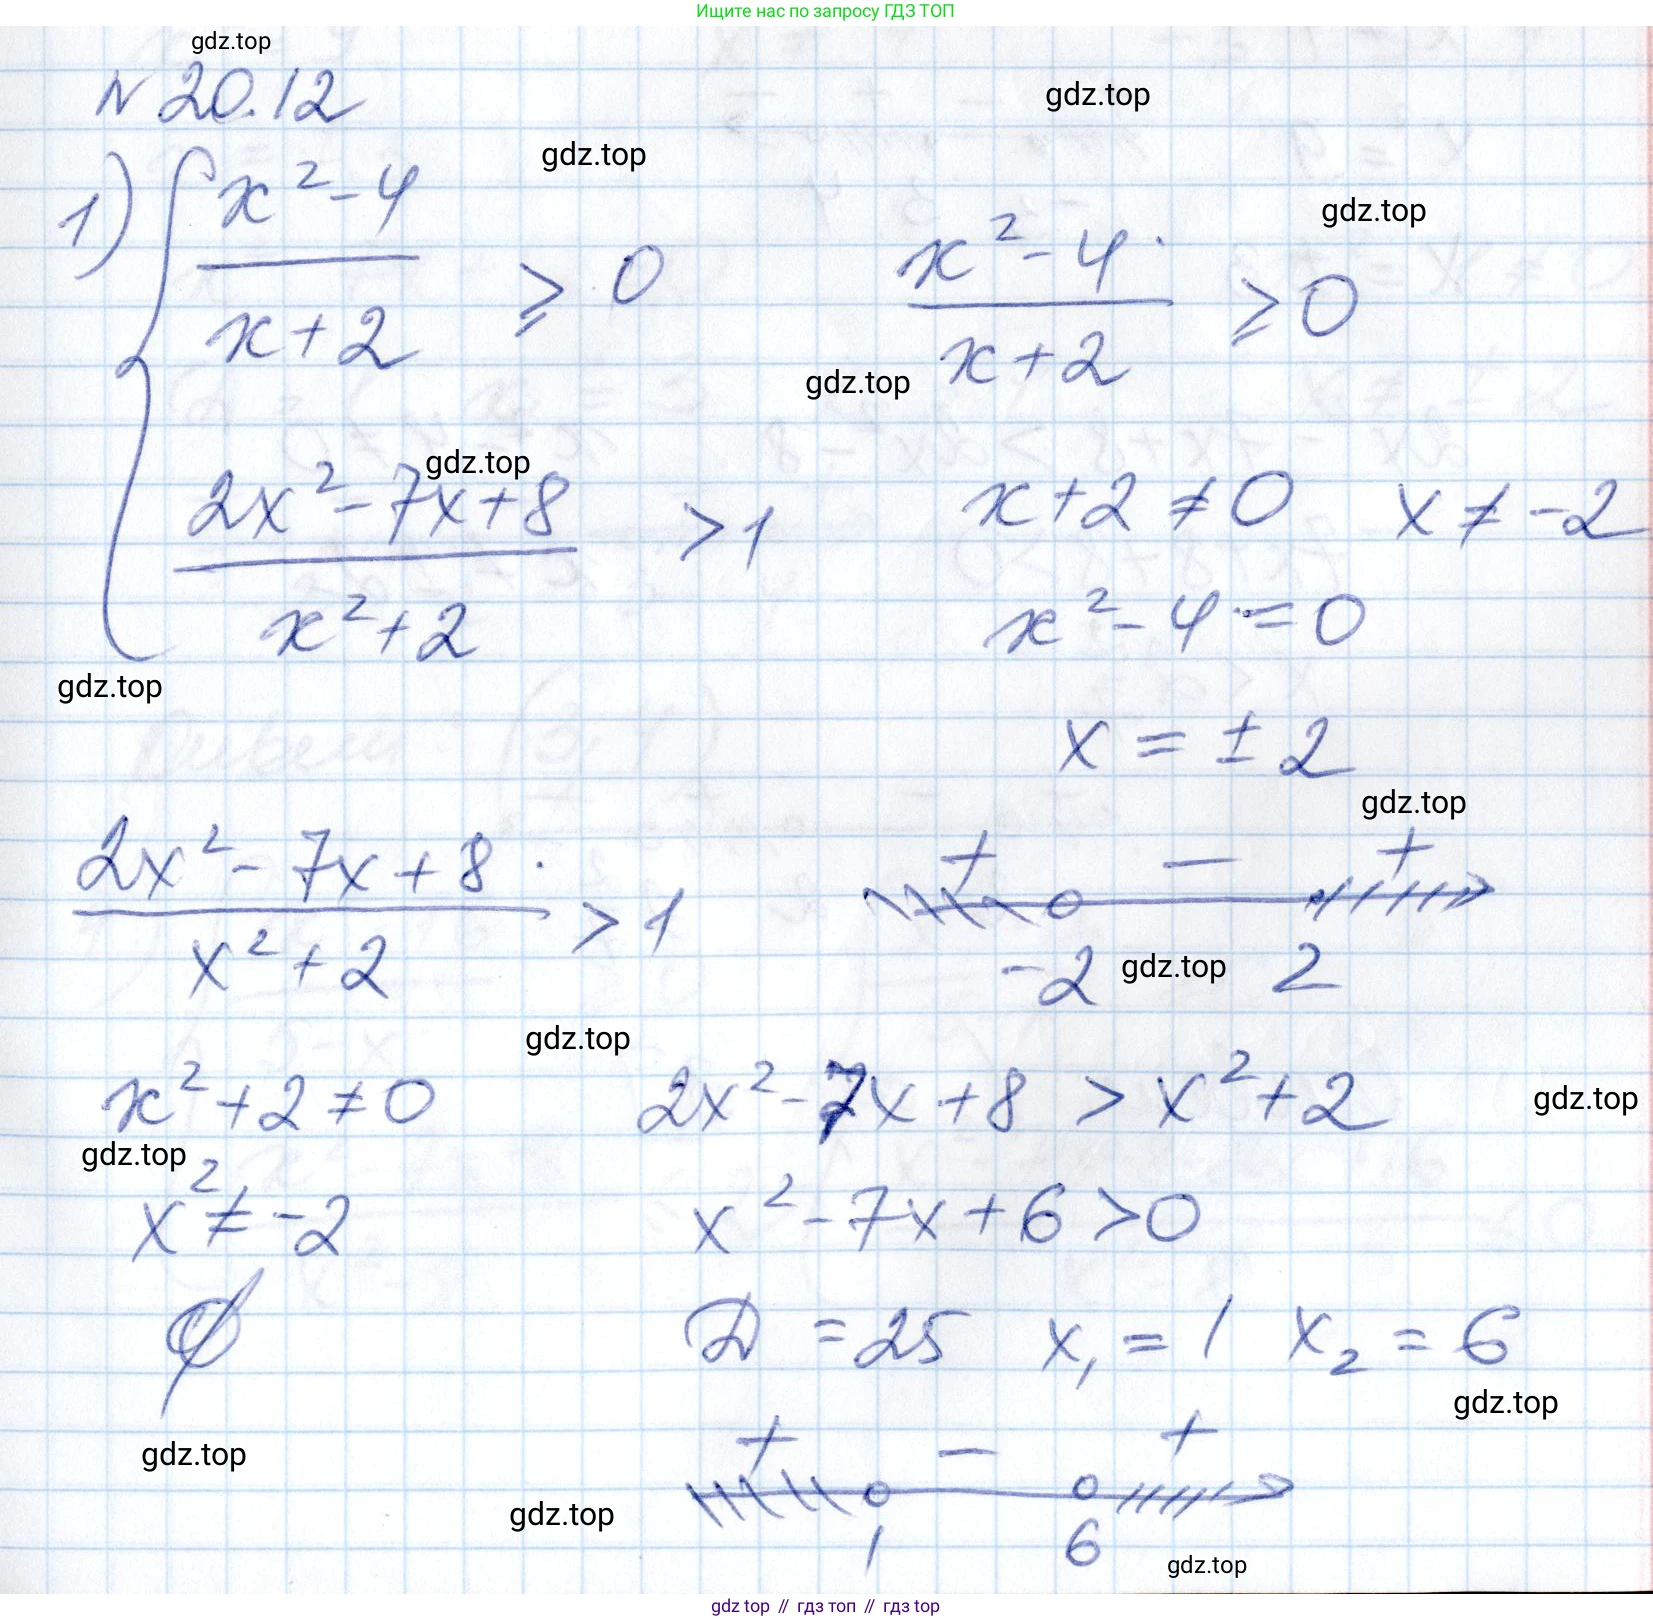 Ищите нас по запросу ГДЗ ТОП
gdz.top
N 20.12
gdz.top
gdz.top
1) { (x² - 4)/(x + 2) ≥ 0
gdz.top
(x² - 4)/(x + 2) ≥ 0
gdz.top
gdz.top
(2x² - 7x + 8)/(x² + 2) > 1
x + 2 ≠ 0   x ≠ -2
x² - 4 = 0
gdz.top
x = ± 2
gdz.top
(2x² - 7x + 8)/(x² + 2) > 1
+ — +
-2 2
gdz.top
gdz.top
x² + 2 ≠ 0
2x² - 7x + 8 > x² + 2
gdz.top
gdz.top
x² ≠ -2
x² - 7x + 6 > 0
∅
D = 25   x₁ = 1   x₂ = 6
gdz.top
gdz.top
+ — +
gdz.top
1 6
gdz.top
gdz top // гдз топ // гдз top